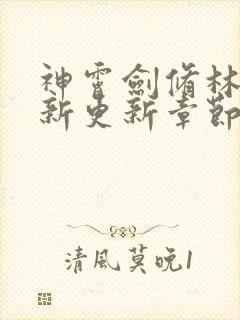 神霄劍脩林
新更新章節
清風莫晚1